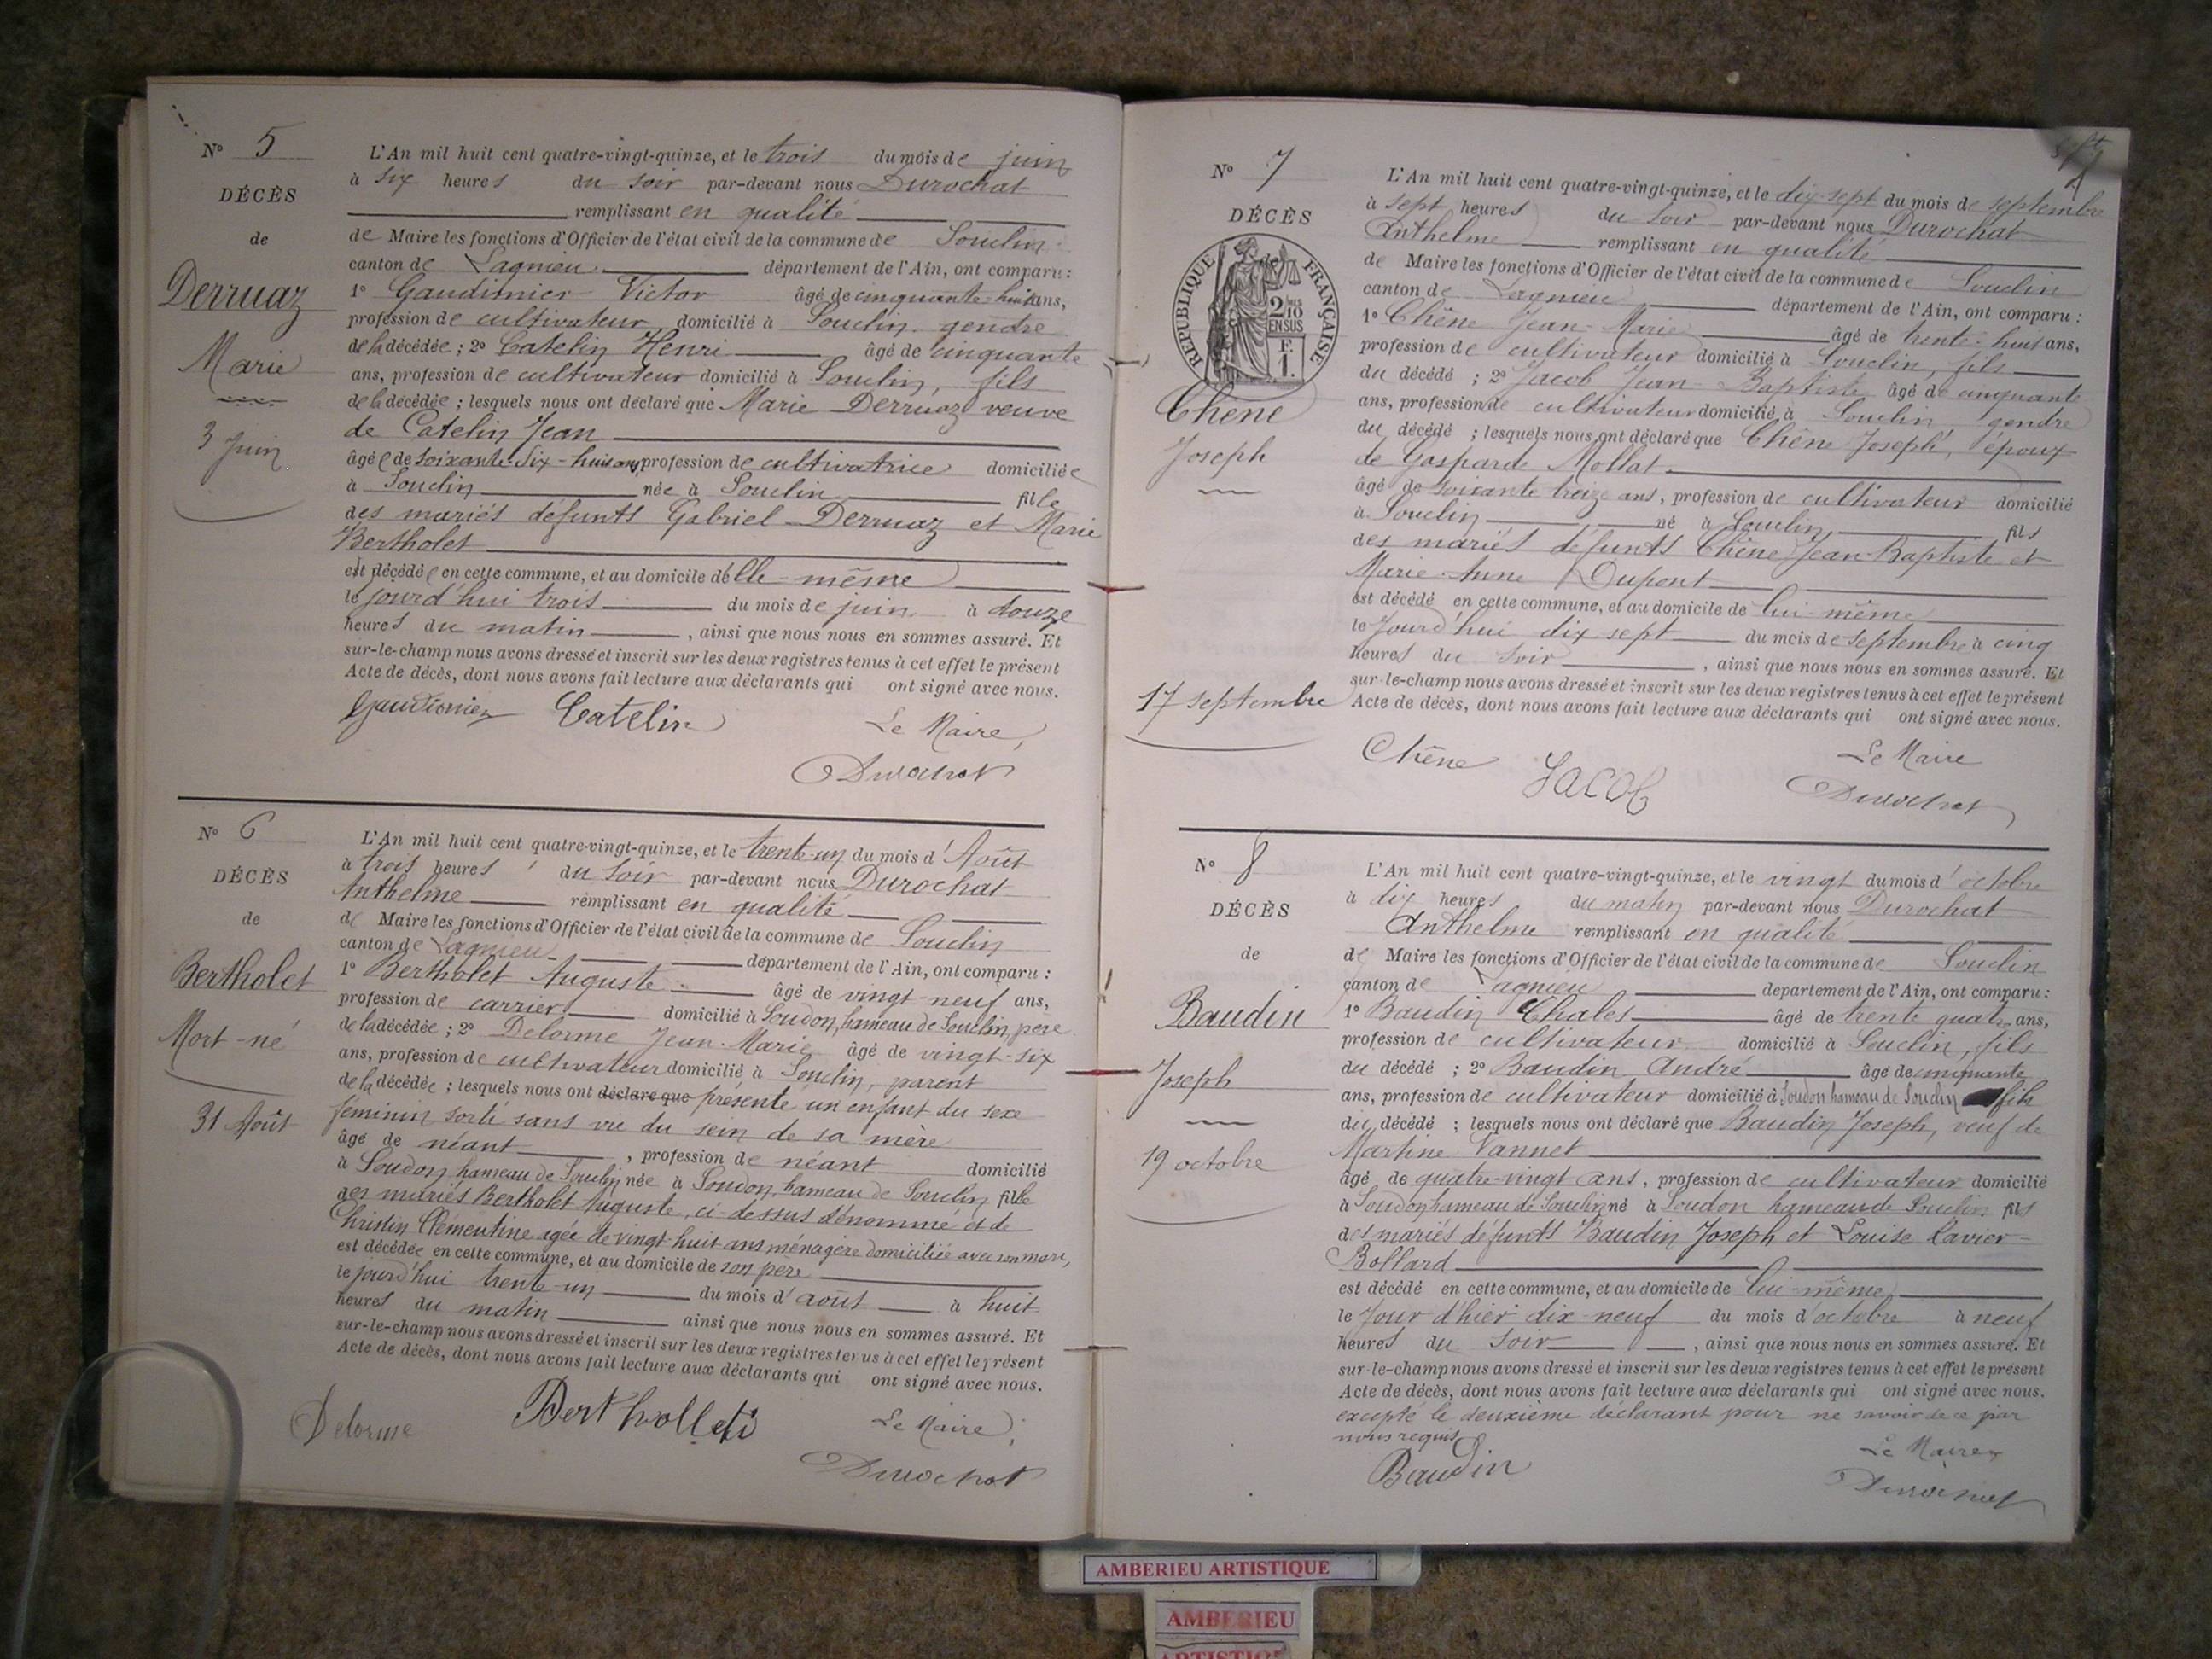 N° 5
DÉCÈS
de
Derruaz
Marie
3 Juin
L'An mil huit cent quatre-vingt-quinze, et le trois du mois de juin
à six heures du soir par-devant nous Durochat
remplissant en qualité
de Maire les fonctions d'Officier de l'état civil de la commune de Souclin
canton de Lagnieu département de l'Ain, ont comparu :
1° Gaudinier Victor âgé de cinquante-huit ans,
profession de cultivateur domicilié à Souclin gendre
de la décédée ; 2° Catelin Henri âgé de cinquante
ans, profession de cultivateur domicilié à Souclin, fils
de la décédée ; lesquels nous ont déclaré que Marie Derruaz veuve
de Catelin Jean
âgée de soixante-dix-huit ans, profession de cultivatrice domiciliée
à Souclin née à Souclin fille
des mariés défunts Gabriel Derruaz et Marie
Bertholet
est décédée en cette commune, et au domicile d'elle-même
le jourd'hui trois du mois de juin à douze
heures du matin, ainsi que nous nous en sommes assuré. Et
sur-le-champ nous avons dressé et inscrit sur les deux registres tenus à cet effet le présent
Acte de décès, dont nous avons fait lecture aux déclarants qui ont signé avec nous.
Gaudinier Catelin Le Maire,
Durochat
N° 6
DÉCÈS
de
Bertholet
Mort-né
31 Août
L'An mil huit cent quatre-vingt-quinze, et le trente-un du mois d'Août
à trois heures du soir par-devant nous Durochat
Anthelme remplissant en qualité
de Maire les fonctions d'Officier de l'état civil de la commune de Souclin
canton de Lagnieu département de l'Ain, ont comparu :
1° Bertholet Auguste âgé de vingt-neuf ans,
profession de carrier domicilié à Soudon, hameau de Souclin, père
de la décédée ; 2° Delorme Jean-Marie âgé de vingt-six
ans, profession de cultivateur domicilié à Souclin, parent
de la décédée ; lesquels nous ont déclaré que présenté un enfant du sexe
féminin sorti sans vie du sein de sa mère
âgé de néant, profession de néant domicilié
à Soudon hameau de Souclin née à Soudon, hameau de Souclin fille
des mariés Bertholet Auguste, ci-dessus dénommé et de
Christin Clémentine agée de vingt-huit ans ménagère domiciliée avec son mari,
est décédée en cette commune, et au domicile de son père
le jourd'hui trente-un du mois d'août à huit
heures du matin ainsi que nous nous en sommes assuré. Et
sur-le-champ nous avons dressé et inscrit sur les deux registres tenus à cet effet le présent
Acte de décès, dont nous avons fait lecture aux déclarants qui ont signé avec nous.
Delorme Bertholet Le Maire,
Durochat
N° 7
DÉCÈS
RÉPUBLIQUE FRANÇAISE
2/10 EN SUS
F. 1.
Chêne
Joseph
17 septembre
L'An mil huit cent quatre-vingt-quinze, et le dix-sept du mois de septembre
à sept heures du soir par-devant nous Durochat
Anthelme remplissant en qualité
de Maire les fonctions d'Officier de l'état civil de la commune de Souclin
canton de Lagnieu département de l'Ain, ont comparu :
1° Chêne Jean-Marie âgé de trente-huit ans,
profession de cultivateur domicilié à Souclin, fils
du décédé ; 2° Jacob Jean-Baptiste âgé de cinquante
ans, profession de cultivateur domicilié à Souclin gendre
du décédé ; lesquels nous ont déclaré que Chêne Joseph, époux
de Gasparde Mollat
âgé de soixante treize ans, profession de cultivateur domicilié
à Souclin né à Souclin fils
des mariés défunts Chêne Jean-Baptiste et
Marie-Anne Dupont
est décédé en cette commune, et au domicile de lui-même
le jourd'hui dix sept du mois de septembre à cinq
heures du soir, ainsi que nous nous en sommes assuré. Et
sur-le-champ nous avons dressé et inscrit sur les deux registres tenus à cet effet le présent
Acte de décès, dont nous avons fait lecture aux déclarants qui ont signé avec nous.
Chêne JACOB Le Maire
Durochat
N° 8
DÉCÈS
de
Baudin
Joseph
19 octobre
L'An mil huit cent quatre-vingt-quinze, et le vingt du mois d'octobre
à dix heures du matin par-devant nous Durochat
Anthelme remplissant en qualité
de Maire les fonctions d'Officier de l'état civil de la commune de Souclin
canton de Lagnieu département de l'Ain, ont comparu :
1° Baudin Chales âgé de trente quatre ans,
profession de cultivateur domicilié à Souclin, fils
du décédé ; 2° Baudin André âgé de cinquante
ans, profession de cultivateur domicilié à Soudon hameau de Souclin fils
du décédé ; lesquels nous ont déclaré que Baudin Joseph, veuf de
Martine Vannet
âgé de quatre-vingt ans, profession de cultivateur domicilié
à Soudon hameau de Souclin né à Soudon hameau de Souclin fils
des mariés défunts Baudin Joseph et Louise Cavier-
Bollard
est décédé en cette commune, et au domicile de lui-même
le jour d'hier dix-neuf du mois d'octobre à neuf
heures du soir, ainsi que nous nous en sommes assuré. Et
sur-le-champ nous avons dressé et inscrit sur les deux registres tenus à cet effet le présent
Acte de décès, dont nous avons fait lecture aux déclarants qui ont signé avec nous.
excepté le deuxième déclarant pour ne savoir de ce par
nous requis
Baudin Le Maire
Durochat
AMBERIEU ARTISTIQUE
AMBERIEU
ARTISTIQUE